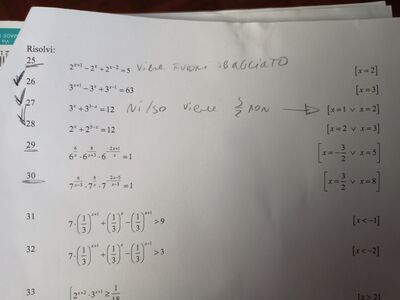 Risolvi:
25 2^{x+1} − 2^x + 2^{x−2} = 5 viene FUORI SBAGLIATO [x = 2]
26 3^{x+1} − 3^x + 3^{x−1} = 63 [x = 3]
27 3^x + 3^{3−x} = 12 viene 3/2 NON → [x = 1 ∨ x = 2]
28 2^x + 2^{5−x} = 12 [x = 2 ∨ x = 3]
29 6^{6/x} · 6^{8/(x+3)} · 6^{−(2x+1)/x} = 1 [x = −3/2 ∨ x = 5]
30 7^{6/(x−3)} · 7^{8/x} · 7^{−(2x−5)/(x−3)} = 1 [x = 3/2 ∨ x = 8]
31 7 · (1/3)^{x+1} + (1/3)^x − (1/3)^{x+1} > 9 [x < −1]
32 7 · (1/3)^{x+1} + (1/3)^x − (1/3)^{x+1} > 3 [x < −2]
33 2^{x+2} · 3^{x+1} ≥ 1/18